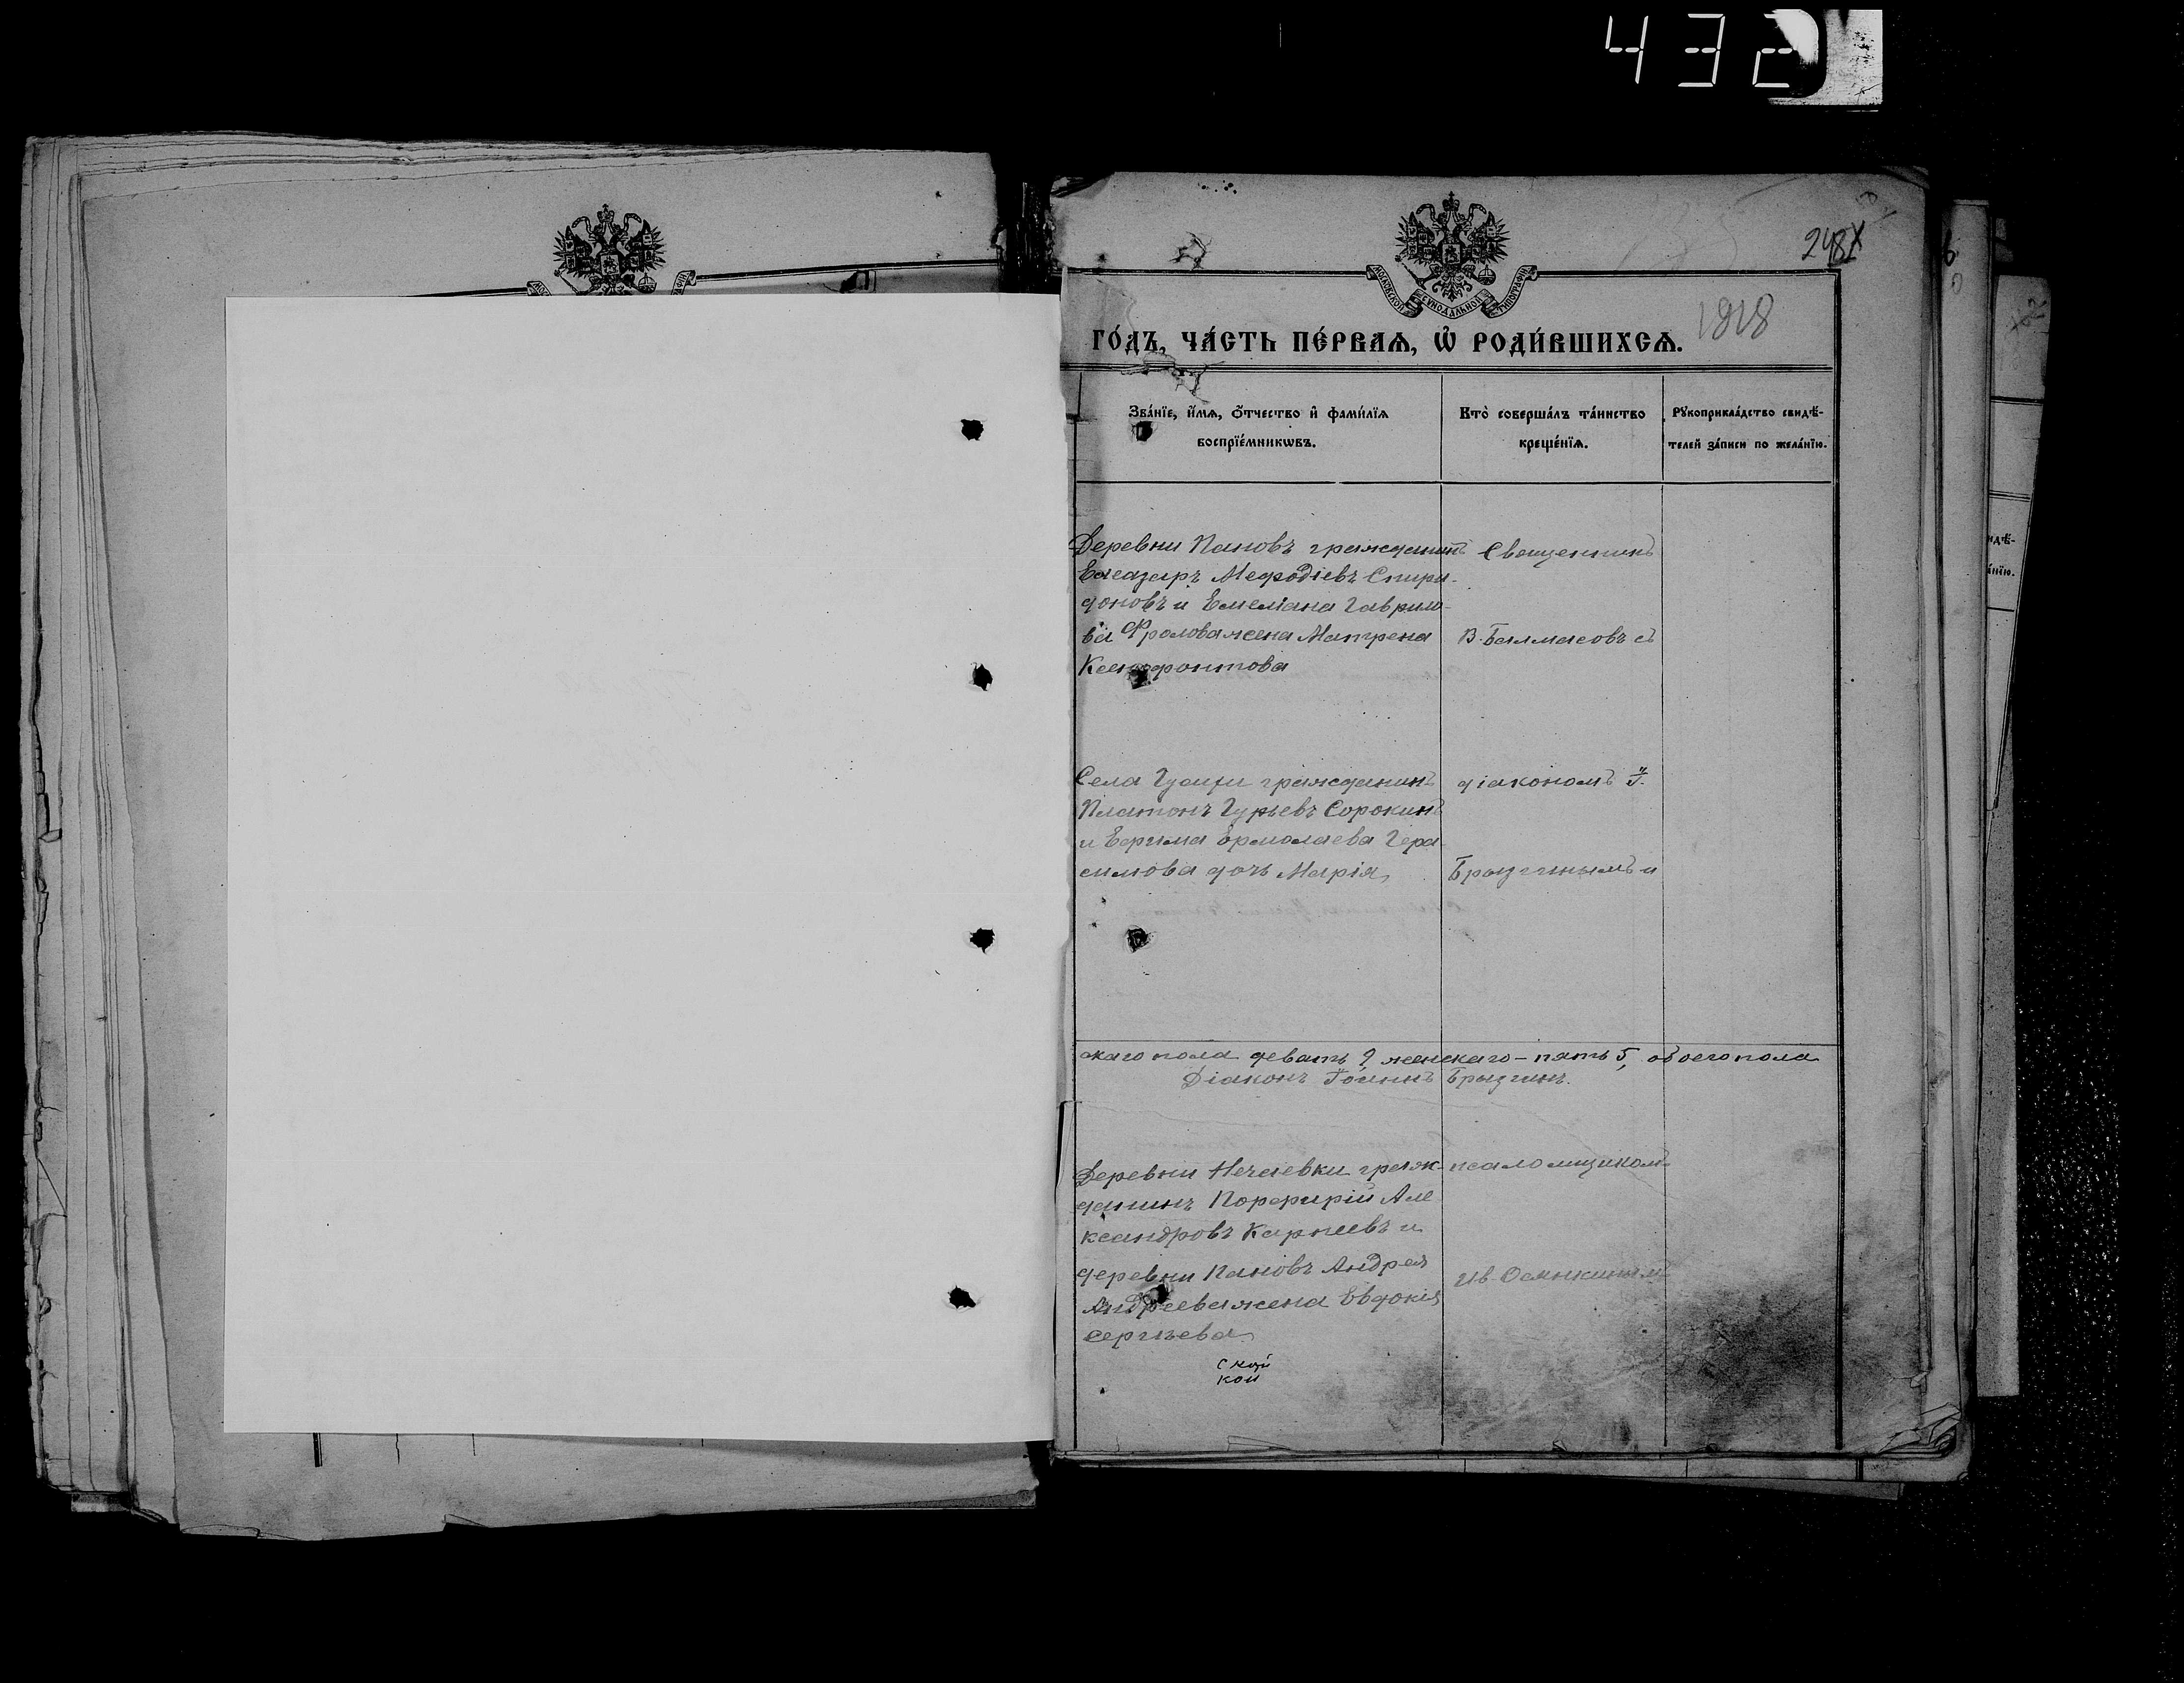 432
248
МОСКОВСКОЙ СѴНОДАЛЬНОЙ ТИПОГРАФІИ
1918
ГО́ДЪ, ЧА́СТЬ ПЕ́РВАѦ, Ѽ РОДИ́ВШИХСѦ.
Зва́нїе, и́мѧ, о́тчество и҆ фами́лїѧ
воспрїе́мникѡвъ.
Кто̀ соверша́лъ та́инство
креще́нїѧ.
Рꙋкоприкла́дство свидѣ́-
телей за́писи по жела́нїю.
Деревни Пановъ гражданинъ
Елеазаръ Мефодіевъ Спири-
доновъ и Емеліана Гаврило-
ва Фролова жена Матрена
Ксенофонтова
Священникъ
В. Балмасовъ съ
Села гражданинъ
Платонъ Гурьевъ Сорокинъ
и Ефима Ермолаева Гера-
симова дочь Марія,
діакономъ І.
Брызгинымъ и
скаго пола девять 9, женскаго - пять 5, обоего пола
Діаконъ Іоаннъ Брызгинъ.
Деревни Нечаевки граж-
данинъ Порфирій Але
ксандровъ Карпеевъ и
деревни Пановъ Андрея
Андреева жена Евдокія
Сергѣева
псаломщикомъ
Ив. Осмикинымъ
ской
кой